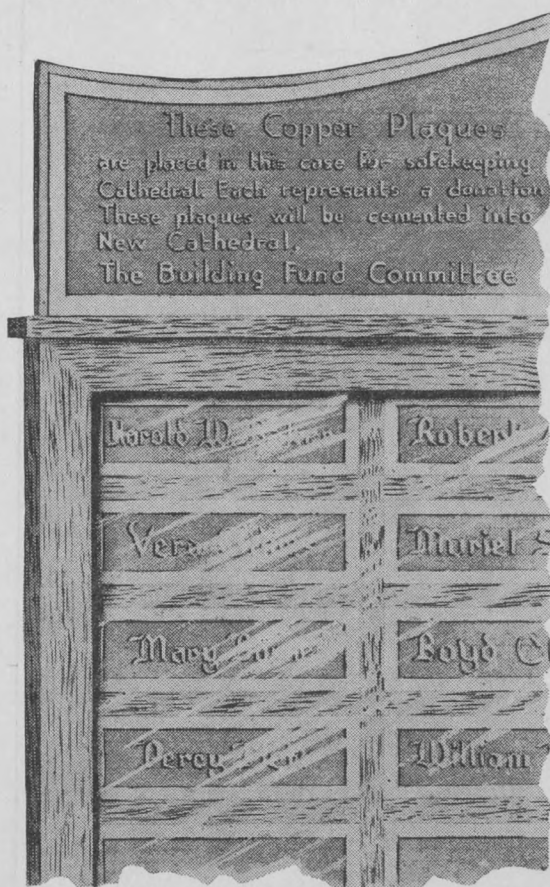 These Copper Plaques
are placed in this case for safekeeping
Cathedral. Each represents a donation
These plaques will be cemented into
New Cathedral.
The Building Fund Committee
Harold
Robert
Vera
Muriel S
Mary
Boyd
Percy
William